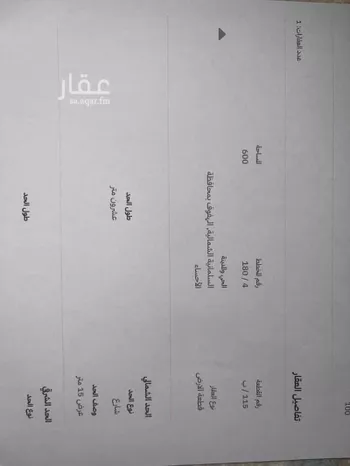 عدد العقارات: 1
تفاصيل العقار
رقم القطعة
115 / ب
رقم المخطط
180 / 4
المساحة
600
نوع العقار
قطعة الارض
الحي والمدينة
السلمانية الشمالية, الهفوف بمحافظة
الأحساء
الحد الشمالي
نوع الحد
شارع
وصف الحد
عرض 15 متر
طول الحد
عشرون متر
الحد الشرقي
نوع الحد
طول الحد
عقار
sa.aqar.fm
100